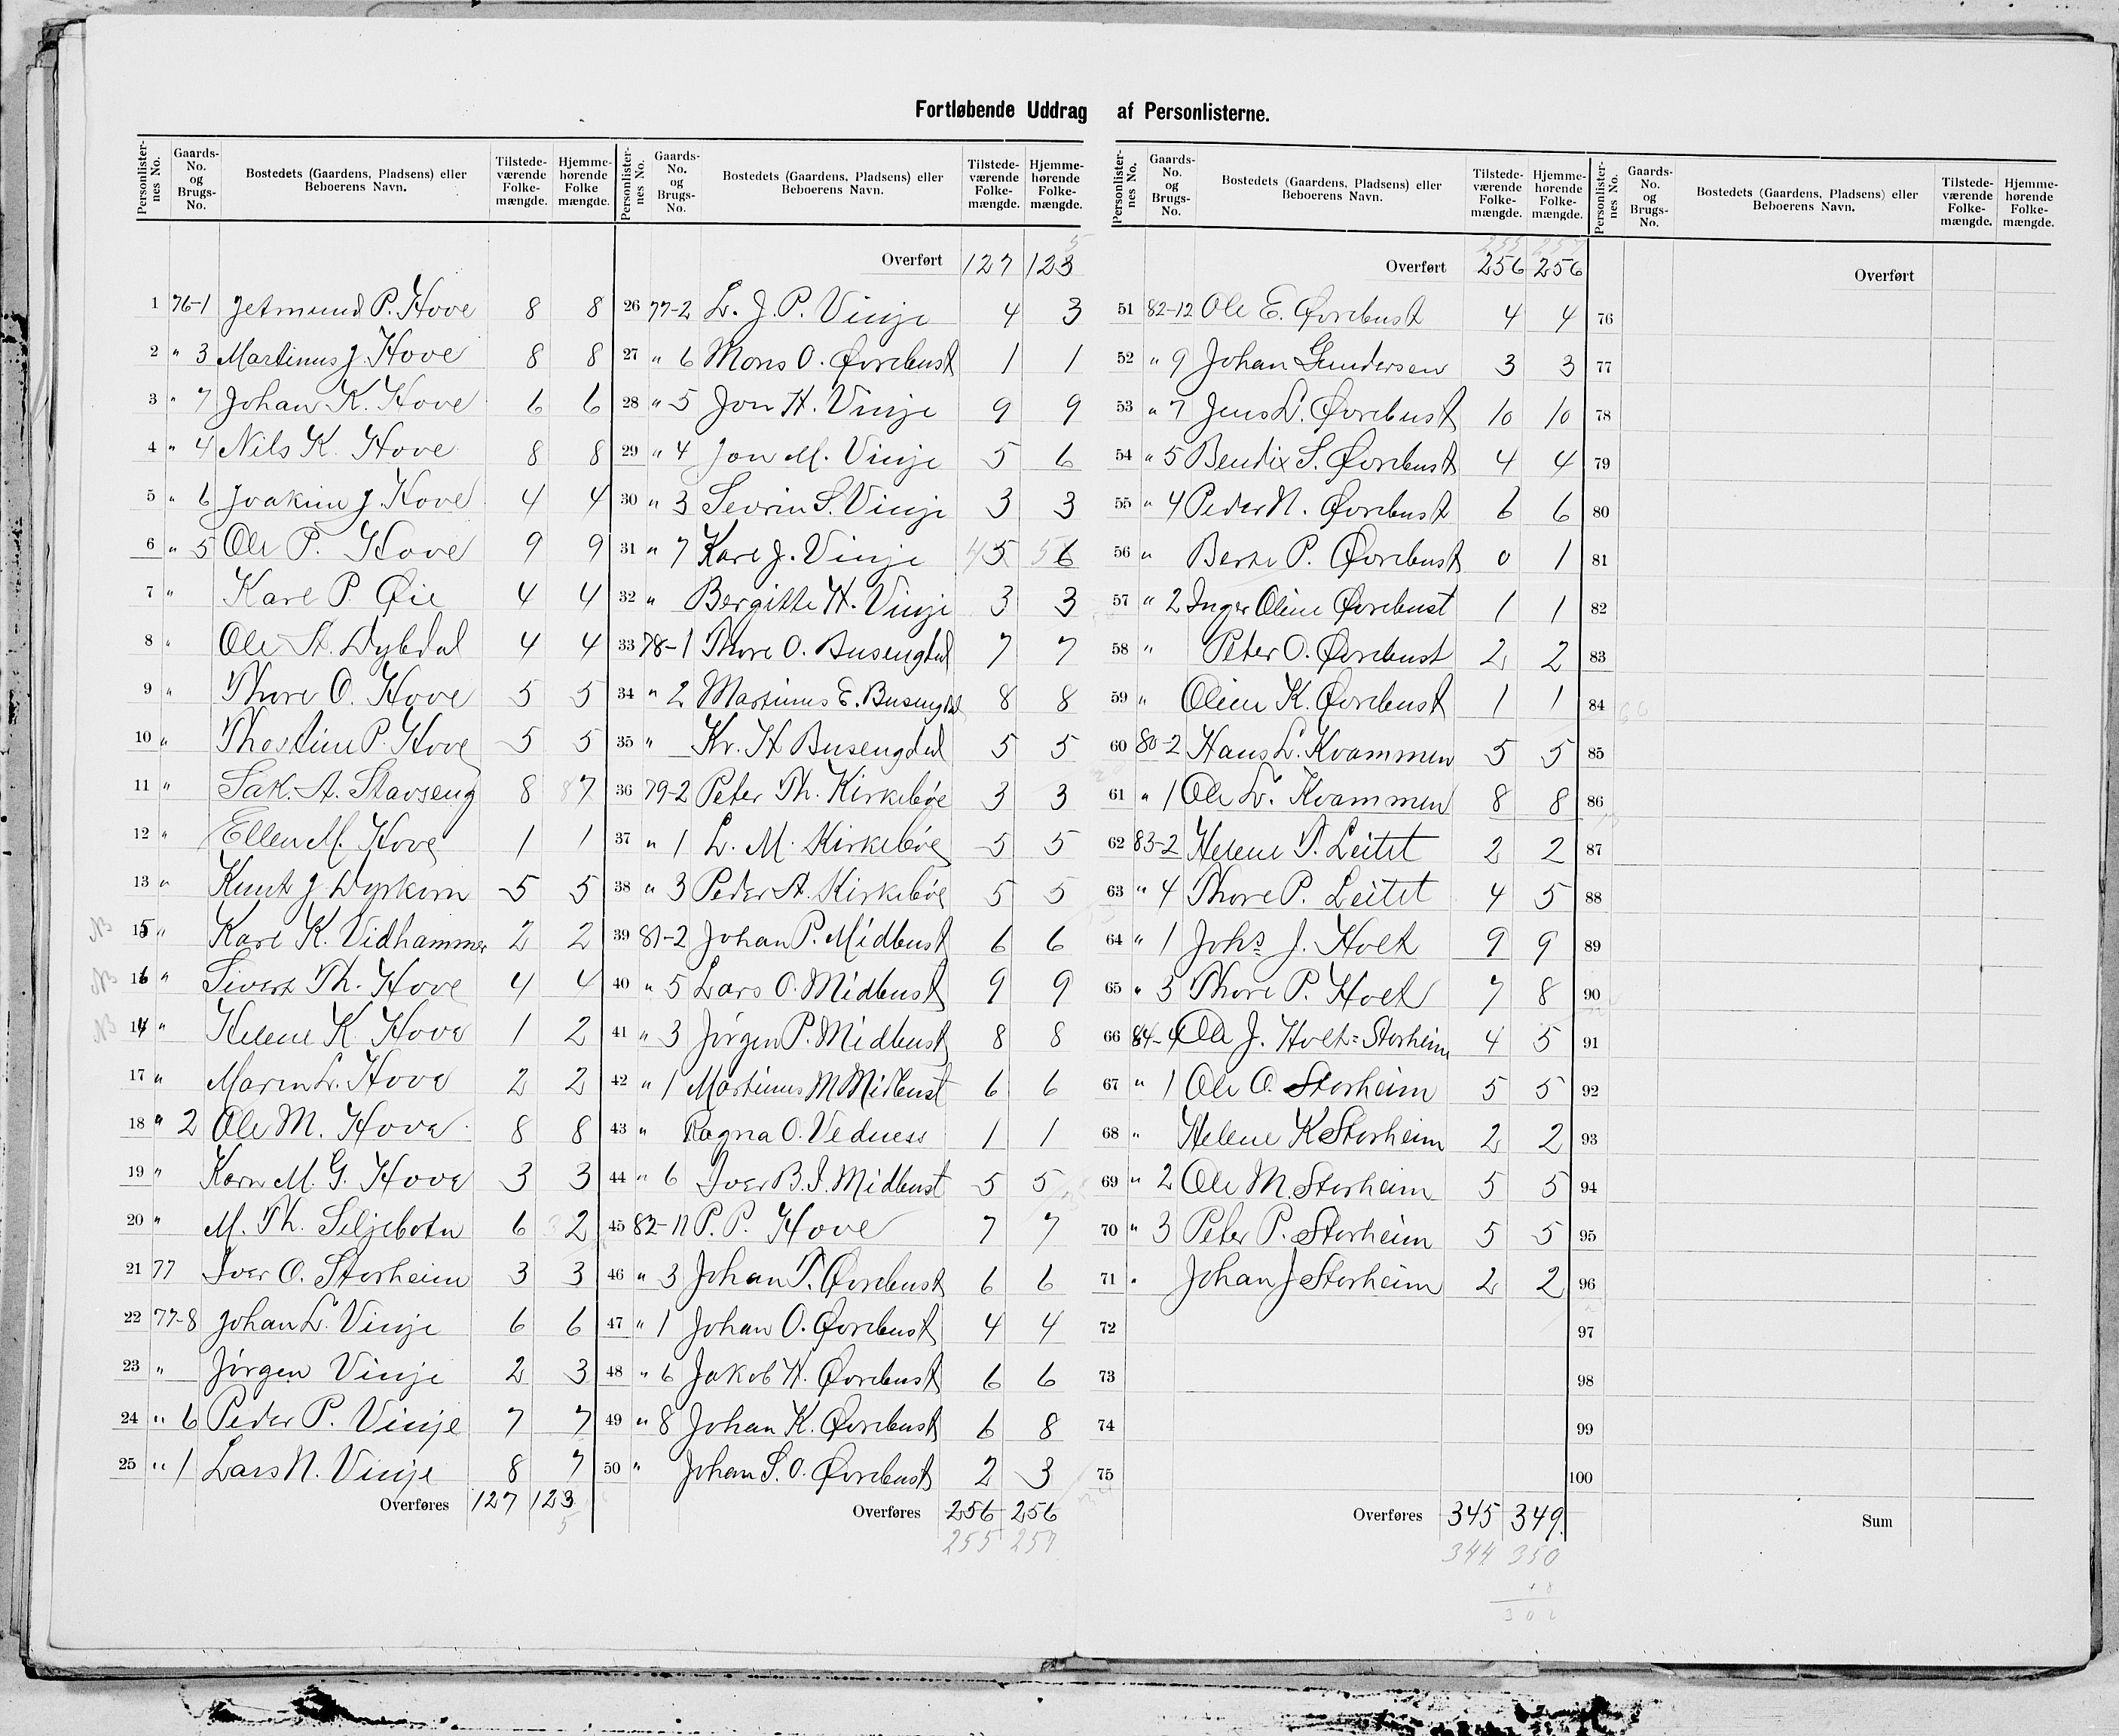 Fortløbende Uddrag af Personlisterne.
Personlisternes No. Gaards-No. og Brugs-No. Bostedets (Gaardens, Pladsens) eller Beboerens Navn. Tilstedeværende Folkemængde. Hjemmehørende Folkemængde.
1 76-1 Jetmund P. Hove 8 8
2 " 3 Martinus J. Hove 8 8
3 " 7 Johan K. Hove 6 6
4 " 4 Nils K. Hove 8 8
5 " 6 Joakim J. Hove 4 4
6 " 5 Ole P. Hove 9 9
7 " Karl P. Øie 4 4
8 " Ole A. Dybdal 4 4
9 " Thore O. Hove 5 5
10 " Thostine P. Hove 5 5
11 " Sak. A. Stavseng 8 7
12 " Ellen M. Hove 1 1
13 " Knut J Dyrkorn 5 5
NB 15 " Kari K. Vidhammer 2 2
NB 16 " Sivert Th. Hove 4 4
NB 14 " Helene K. Hove 1 2
17 " Maren L. Hove 2 2
18 " 2 Ole M. Hove 8 8
19 " Karn M. G. Hove 3 3
20 " M. Th. Seljebotn 6 2
21 77 Iver O. Storheim 3 3
22 77-8 Johan L. Vinje 6 6
23 " Jørgen Vinje 2 3
24 " 6 Peder P. Vinje 7 7
25 " 1 Lars N. Vinje 8 7
Overføres 127 123
5
Personlisternes No. Gaards-No. og Brugs-No. Bostedets (Gaardens, Pladsens) eller Beboerens Navn. Tilstedeværende Folkemængde. Hjemmehørende Folkemængde.
5
Overført 127 123
26 77-2 L. J. P. Vinje 4 3
27 " 6 Mons O. Øvrebust 1 1
28 " 5 Jon H. Vinje 9 9
29 " 4 Jon M. Vinje 5 6
30 " 3 Sevrin S. Vinje 3 3
31 " 7 Kare J. Vinje 45 56
32 " Bergitte H. Vinje 3 3
33 78-1 Thore O. Busengdal 7 7
34 " 2 Martinus E. Busengdal 8 8
35 " Kr. H Busengdal 5 5
36 79-2 Peter Th. Kirkebøe 3 3
37 " 1 L. M. Kirkebøe 5 5
38 " 3 Peder A. Kirkebøe 5 5
39 81-2 Johan P. Midbust 6 6
40 " 5 Lars O. Midbust 9 9
41 " 3 Jørgen P. Midbust 8 8
42 " 1 Martinus M Midbust 6 6
43 " Ragna O. Vedness 1 1
44 " 6 Iver B. I. Midbust 5 5
45 82-11 P. P. Hove 7 7
46 " 3 Johan T. Øvrebust 6 6
47 " 1 Johan O. Øvrebust 4 4
48 " 6 Jakob H. Øvrebust 6 6
49 " 8 Johan K. Øvrebust 6 8
50 " Johan S. O. Øvrebust 2 3
Overføres 256 256
255 257
Personlisternes No. Gaards-No. og Brugs-No. Bostedets (Gaardens, Pladsens) eller Beboerens Navn. Tilstedeværende Folkemængde. Hjemmehørende Folkemængde.
255 257
Overført 256 256
51 82-12 Ole E. Øvrebust 4 4
52 " 9 Johan Gundersen 3 3
53 " 7 Jens L. Øvrebust 10 10
54 " 5 Bendix S. Øvrebust 4 4
55 " 4 Peder N. Øvrebust 6 6
56 " Berte P. Øvrebust 0 1
57 " 2 Inger Oline Øvrebust 1 1
58 " Peter O. Øvrebust 2 2
59 " Oline K. Øvrebust 1 1
60 80-2 Hans L. Kvammen 5 5
61 " 1 Ole L. Kvammen 8 8
62 83-2 Helene T. Leitet 2 2
63 " 4 Thore P. Leitet 4 5
64 " 1 Johs J. Holt 9 9
65 " 3 Thore P. Holt 7 8
66 84-4 Ole J. Holt=Storheim 4 5
67 " 1 Ole O. Storheim 5 5
68 " Helene K Storheim 2 2
69 " 2 Ole M. Storheim 5 5
70 " 3 Peter P. Storheim 5 5
71 " Johan J Storheim 2 2
72
73
74
75
Overføres 345 349
344 350
Personlisternes No. Gaards-No. og Brugs-No. Bostedets (Gaardens, Pladsens) eller Beboerens Navn. Tilstedeværende Folkemængde. Hjemmehørende Folkemængde.
Overført
76
77
78
79
80
81
82
83
84
85
86
87
88
89
90
91
92
93
94
95
96
97
98
99
100
Sum